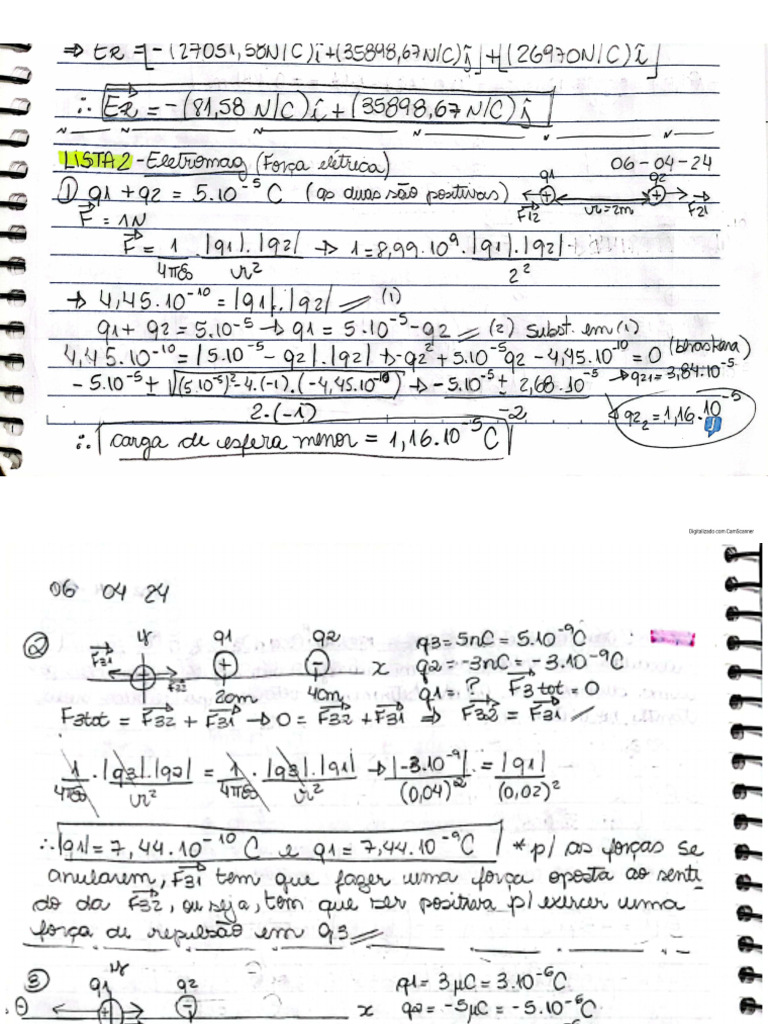 ⇒ E⃗R = [-(27051,58N/C)î+(35898,67N/C)ĵ]+[(26970N/C)î]
∴ E⃗R = -(81,58 N/C)î + (35898,67 N/C)ĵ
LISTA 2 - Eletromag (Força elétrica) 06-04-24
① q1 + q2 = 5.10⁻⁵ C (as duas são positivas) F⃗12 q1 + r=2m q2 + F⃗21
F⃗ = 1N
F⃗ = 1/4πε0 . |q1|.|q2|/r² → 1 = 8,99.10⁹ . |q1|.|q2|/2²
→ 4,45.10⁻¹⁰ = |q1|.|q2| (1)
q1 + q2 = 5.10⁻⁵ → q1 = 5.10⁻⁵ - q2 (2) subst. em (1)
4,45.10⁻¹⁰ = |5.10⁻⁵ - q2|.|q2| → -q2² + 5.10⁻⁵q2 - 4,45.10⁻¹⁰ = 0 (bhaskara)
-5.10⁻⁵ ± √(5.10⁻⁵)² - 4.(-1).(-4,45.10⁻¹⁰) / 2.(-1) → -5.10⁻⁵ ± 2,68.10⁻⁵ / -2 → q21 = 3,84.10⁻⁵
→ q22 = 1,16.10⁻⁵
∴ carga de esfera menor = 1,16.10⁻⁵ C
Digitalizado com CamScanner
06 04 24
② y q1 q2 q3 = 5nC = 5.10⁻⁹C
F⃗31 + F⃗32 + - x q2 = -3nC = -3.10⁻⁹C
20cm 40cm q1 = ? F⃗3tot = 0
F3tot = F⃗32 + F⃗31 → 0 = F⃗32 + F⃗31 ⇒ F⃗32 = F⃗31
1/4πε0 . |q3|.|q2|/r² = 1/4πε0 . |q3|.|q1|/r² → |-3.10⁻⁹|/(0,04)² = |q1|/(0,02)²
∴ |q1| = 7,44.10⁻¹⁰ C e q1 = 7,44.10⁻⁹ C * p/ as forças se
anularem, F⃗31 tem que fazer uma força oposta ao senti
do da F⃗32, ou seja, tem que ser positiva p/ exercer uma
força de repulsão em q3
③ y q1 q2 q1 = 3μC = 3.10⁻⁶C
- + - x q2 = -5μC = -5.10⁻⁶C